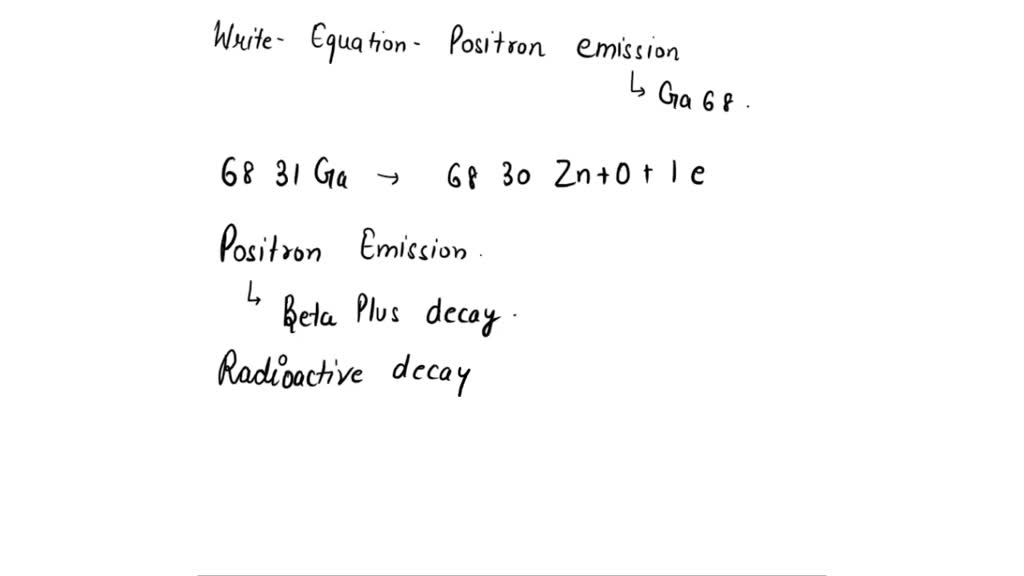 Write- Equation- Positron emission
↳ Ga 68.
68 31 Ga → 68 30 Zn+0 + 1 e
Positron Emission.
↳ Beta Plus decay.
Radioactive decay